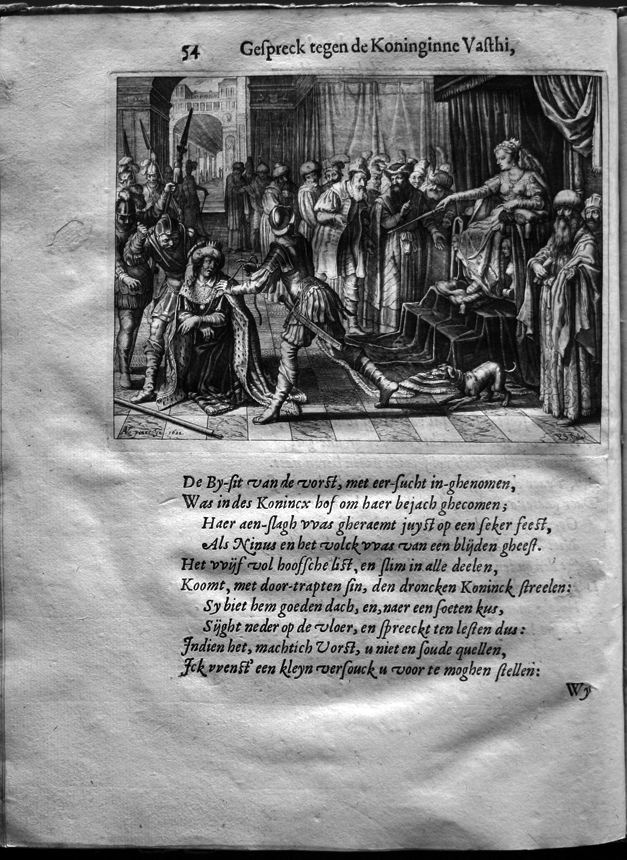 54 Gespreck tegen de Koninginne Vasthi,
1622
De By-sit van de vorst, met eer-sucht in-ghenomen,
Was in des Konincx hof om haer bejach ghecomen;
Haer aen-slagh vvas gheraemt juyst op een seker feest,
Als Ninus en het volck vvas van een blijden gheest.
Het vvijf vol hoofsche list, en slim in alle deelen,
Koomt, met door-trapten sin, den droncken Koninck streelen:
Sy biet hem goeden dach, en, naer een soeten kus,
Sijght neder op de vloer, en spreeckt ten lesten dus:
Indien het, machtich Vorst, u niet en soude quellen,
Ick vvenst' een kleyn versouck u voor te moghen stellen:
Wy